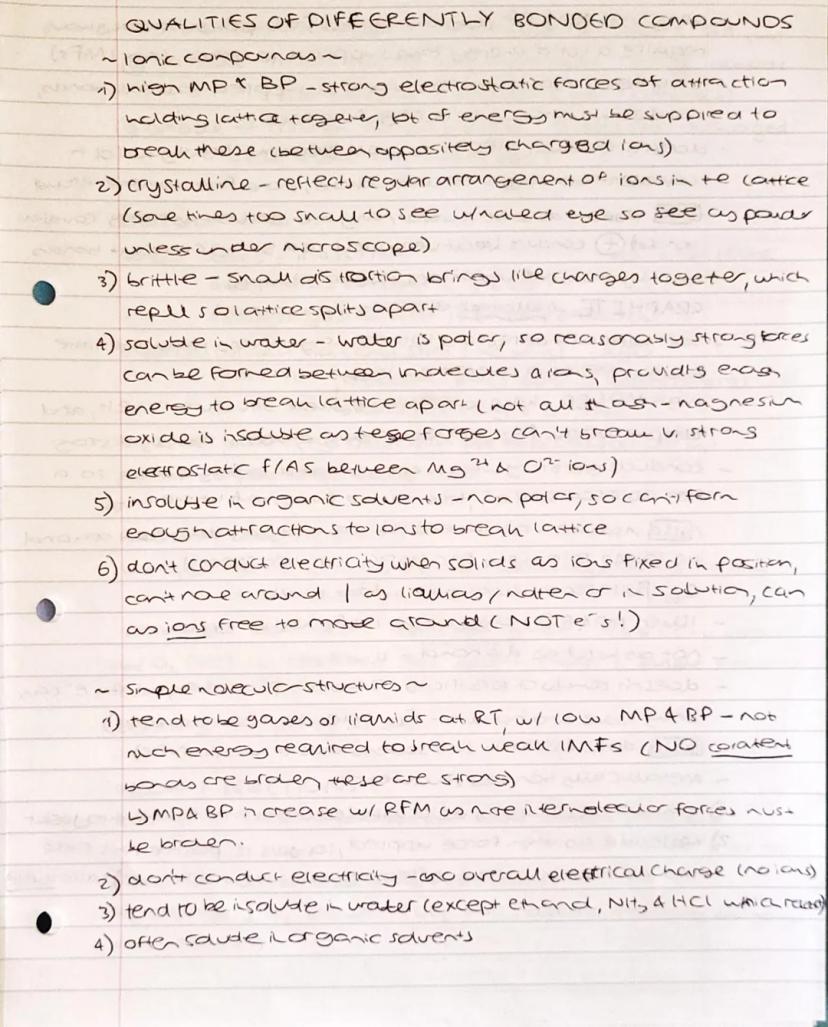 QUALITIES OF DIFFERENTLY BONDED COMPOUNDS
~ Ionic compounds ~
1) high MP & BP - strong electrostatic forces of attraction
holding lattice together, lot of energy must be supplied to
break these (between oppositely charged ions)
2) crystalline - reflects regular arrangement of ions in the lattice
(sometimes too small to see w/naked eye so see as powder
unless under microscope)
3) brittle - small distortion brings like charges together, which
repel so lattice splits apart
4) soluble in water - water is polar, so reasonably strong forces
can be formed between molecules & ions, providing enough
energy to break lattice apart (not all though - magnesium
oxide is insoluble as these forces can't break v. strong
electrostatic f/As between Mg²⁺ & O²⁻ ions)
5) insoluble in organic solvents - non polar, so can't form
enough attractions to ions to break lattice
6) don't conduct electricity when solids as ions fixed in position,
can't move around / as liquids / molten or in solution, can
as ions free to move around (NOT e⁻s!)
~ Simple molecular structures ~
1) tend to be gases or liquids at RT, w/ low MP & BP - not
much energy required to break weak IMFs (NO covalent
bonds are broken, these are strong)
↳ MP & BP increase w/ RFM as more intermolecular forces must
be broken.
2) don't conduct electricity - no overall electrical charge (no ions)
3) tend to be insoluble in water (except ethanol, NH₃ & HCl which react)
4) often soluble in organic solvents